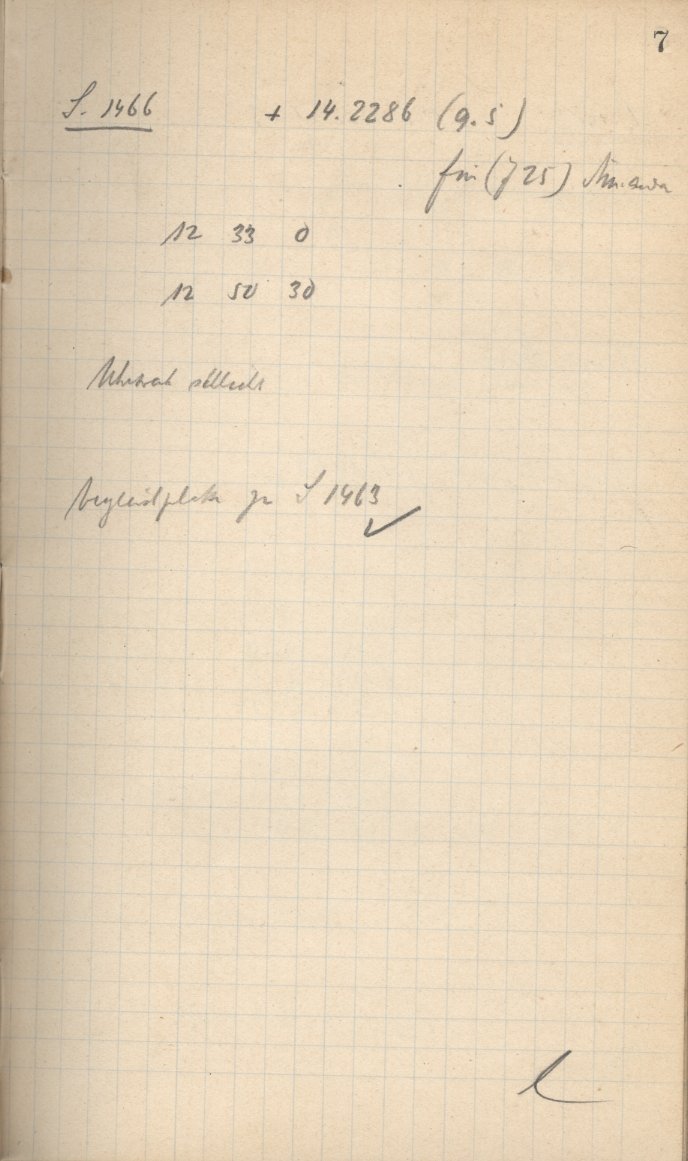 7
S. 1466 + 14.2286 (9.5)
für (725) Amanda
12 33 0
12 50 30
Uhrwerk schlecht
Vergleichplatte zu S 1463 ✓